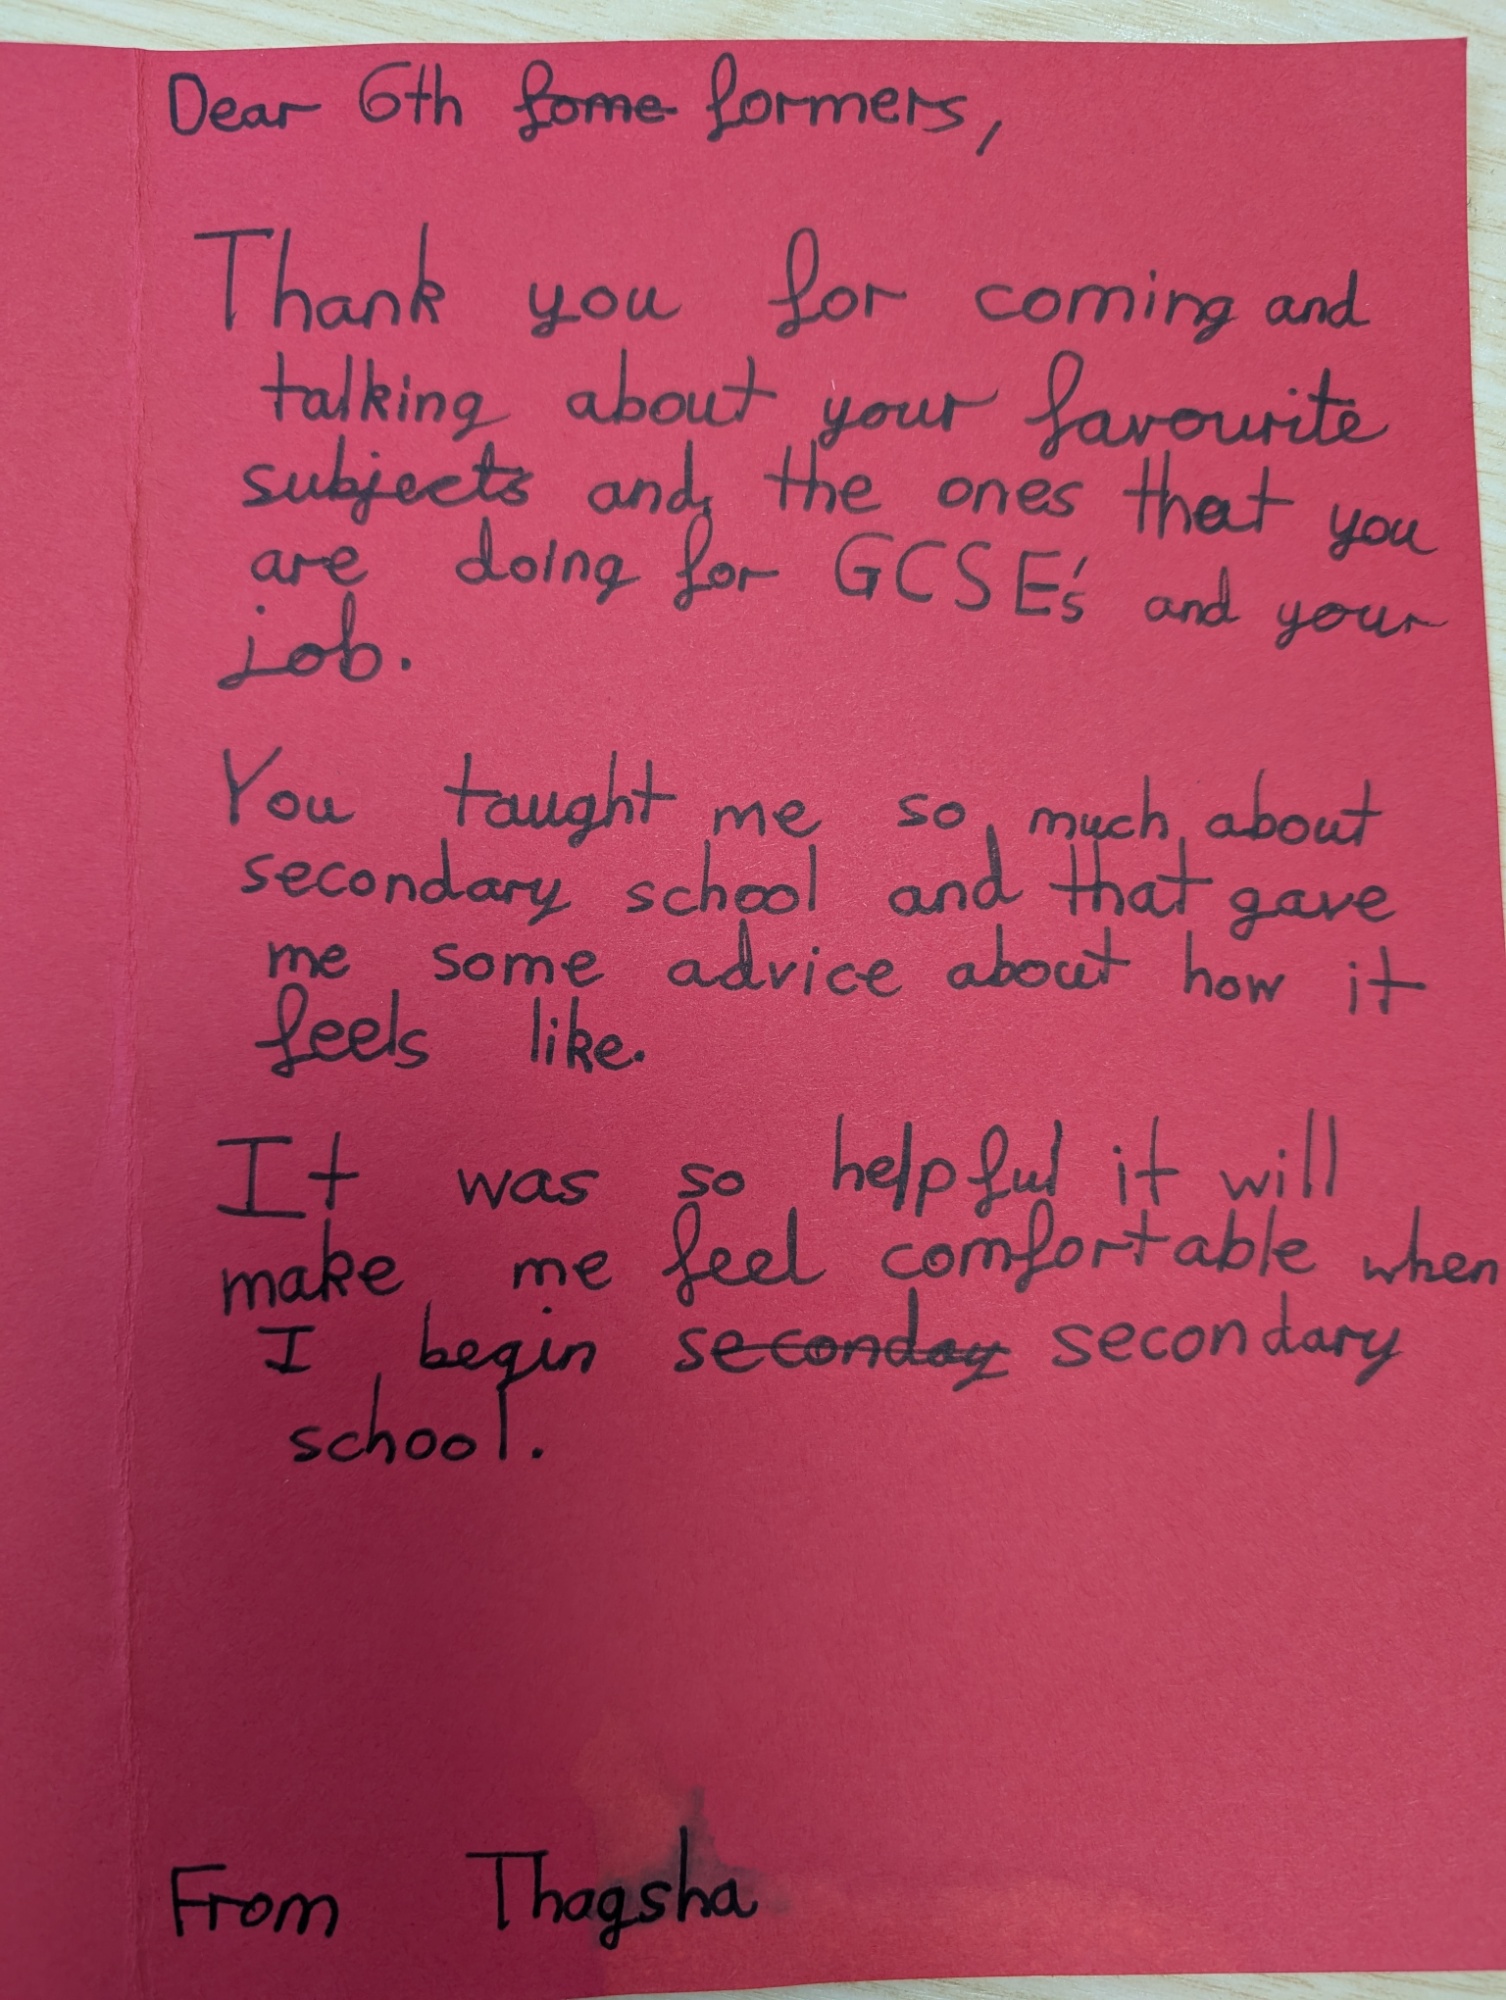 Dear 6th fome formers,
Thank you for coming and
talking about your favourite
subjects and the ones that you
are doing for GCSE's and your
job.
You taught me so much about
secondary school and that gave
me some advice about how it
feels like.
It was so helpful it will
make me feel comfortable when
I begin seconday secondary
school.
From Thagsha